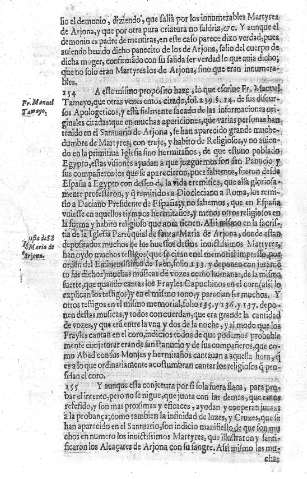 lio el demonio, diziendo, que salia por los innumerables Martyres
de Arjona, y que por otra pura criatura no saldria, &c. Y aunque el
demonio es padre de mentiras, en este caso parece dizo verdad, pues
auiendo beuido dicho panecito de los de Arjona, salio del cuerpo de
dicha muger, confirmando con su salida ser verdad lo que auia dicho;
que no solo eran Martyres los de Arjona, sino que eran innumera-
bles.
Fr. Manuel
Tamayo,
154 A este mismo proposito haze, lo que escriue Fr. Manuel
Tamayo, que otras vezes emos citado, fol. 239. §. 14. de sus discur-
sos Apologeticos, y està fielmente sacado de las informaciones ori-
ginales citadas que en muchas apariciones, que varias personas han
tenido en el Santuario de Arjona, se han aparecido grande muche-
dumbre de Martyres, con traje, y habito de Religiosos, y no auien-
do en la primitiua Iglesia sino hermitaños, de que estuuo poblado
Egypto, estas visiones ayudan a que juzguemos son San Panucio y
sus compañeros los que se aparecieron, pues sabemos, fueron desde
España a Egypto con desseo de la vida eremitica, que allà gloriosa-
mente professaron, y que
a Daciano Presidente de España, y no sabemos, que en España
vuiesse en aquellos tiempos hermitaños, y menos otros religiosos en
la forma y habito religioso que aora tienen. Assi mismo en la sacris-
tia de la Iglesia Parroquial de santa Maria de Arjona, donde están
depositados muchos de los huessos destos inuictissimos Martyres,
han oydo muchos testigos (que se citan en el memorial impresso, por
orden del Eminentissimo de Jaen, folio 133. y deponen con juramen-
to las dichos) muchas musicas de vozes como humanas, de la misma
suerte, que quando cantan los Frayles Capuchinos en el coro (assi lo
explican los testigos) y en el mismo tono, y parecian ser muchos. Y
otros testigos en el mismo memorial, folio 135. y 136. y 137. depo-
nen destas musicas, y todos concuerdan, que era grande la cantidad
de vozes, y que era entre la vna, y dos de la noche, y al modo que los
Frayles cantan en el coro, indicios todos de que podemos probable-
mente conjeturar eran de san Panucio y de sus compañeros, que co-
mo Abad con sus Monjes y hermitaños cantauan a aquella hora, q
es a lo que ordinariamente acostumbran cantar los religiosos q pro-
fessan el coro.
155 Y aunque esta conjetura por si sola fuera flaca, para pro-
bar el intento, pero no se niegue, que junta con las demas, que emos
referido, y son mas proximas y eficaces, ayudan y cooperan juntas
a la probança; como tambien la infinidad de luzes, y Cruzes, que se
han aparecido en el Santuario, son indicio manifiesto, de que son mu-
chos en numero los inuictissimos Martyres, que illustraron y santi-
ficaron los Alcaçares de Arjona con su sangre. Assi mismo los mu-
chos